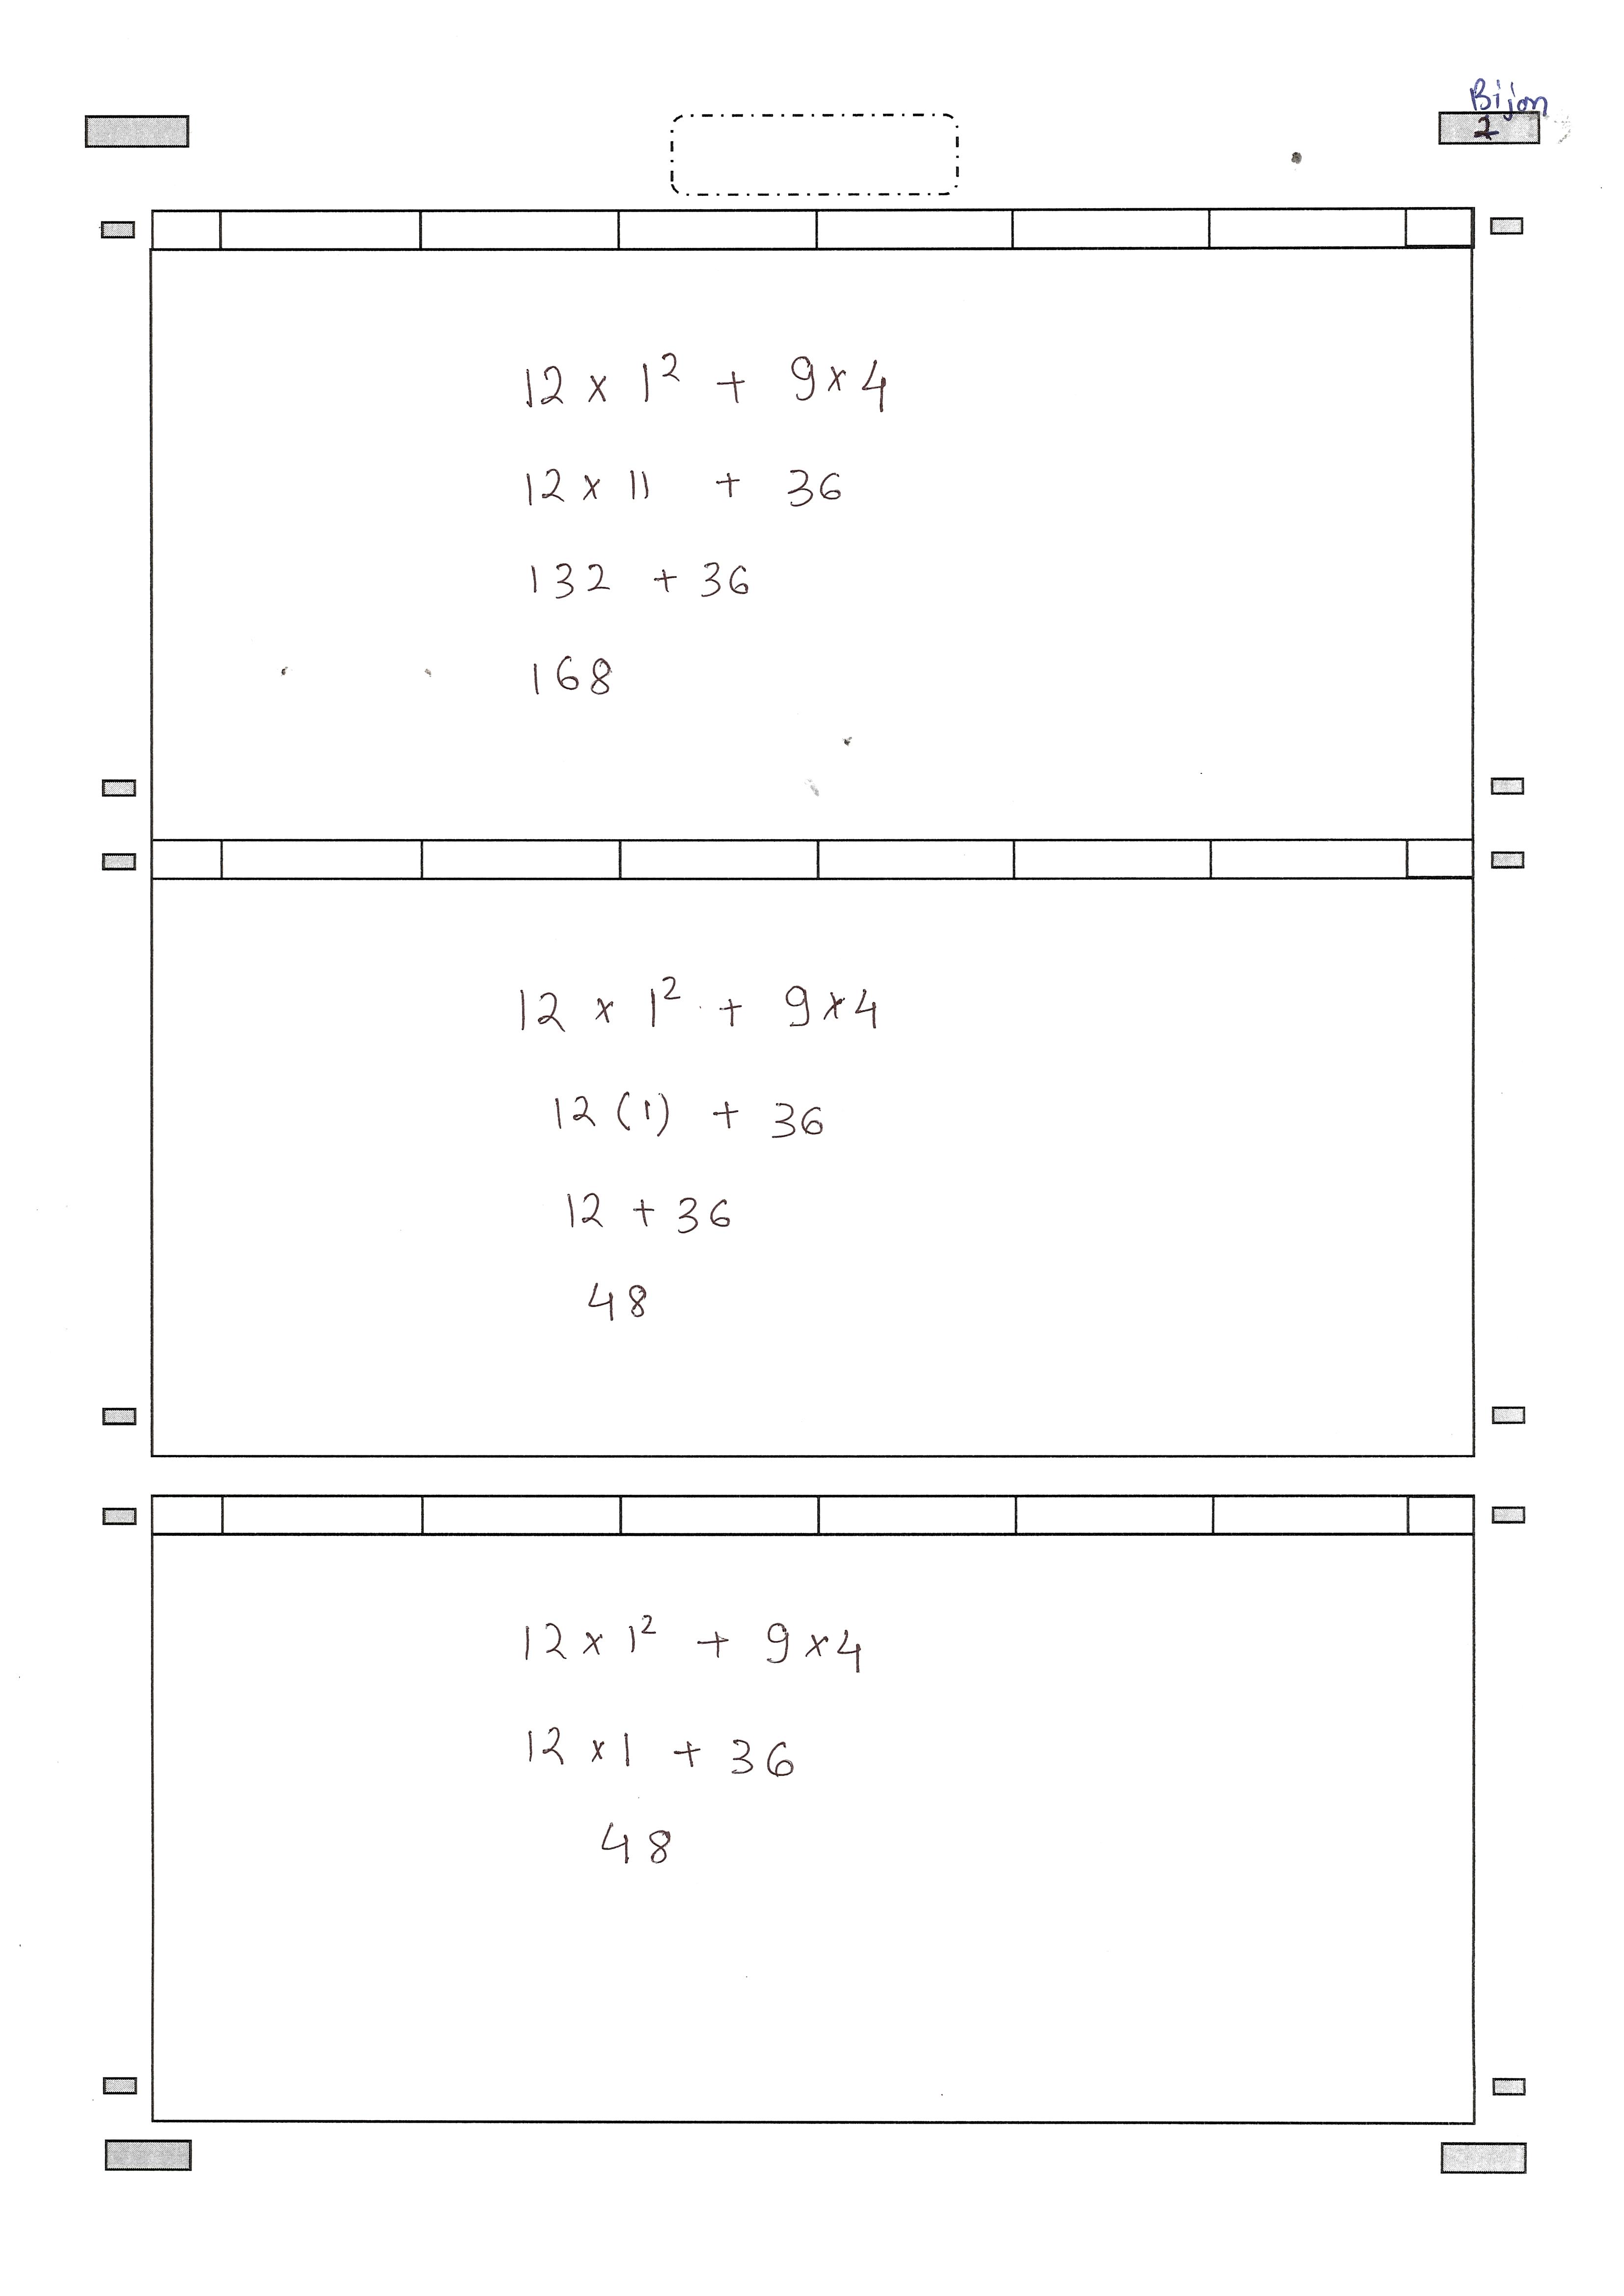 Bijon
1
12 × 1² + 9×4
12 × 11 + 36
132 + 36
168
12 × 1² + 9×4
12 (1) + 36
12 + 36
48
12 × 1² + 9×4
12 × 1 + 36
48